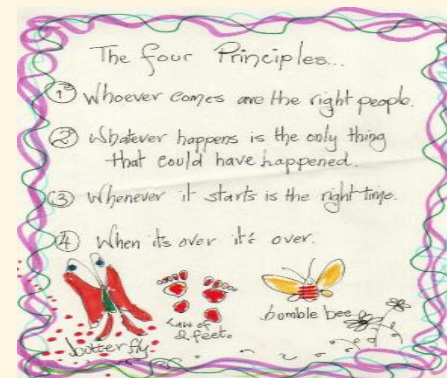 The four Principles...
① Whoever comes are the right people.
② Whatever happens is the only thing
that could have happened.
③ Whenever it starts is the right time.
④ When its over it's over.
butterfly.
Law of
2 feet.
bomble bee